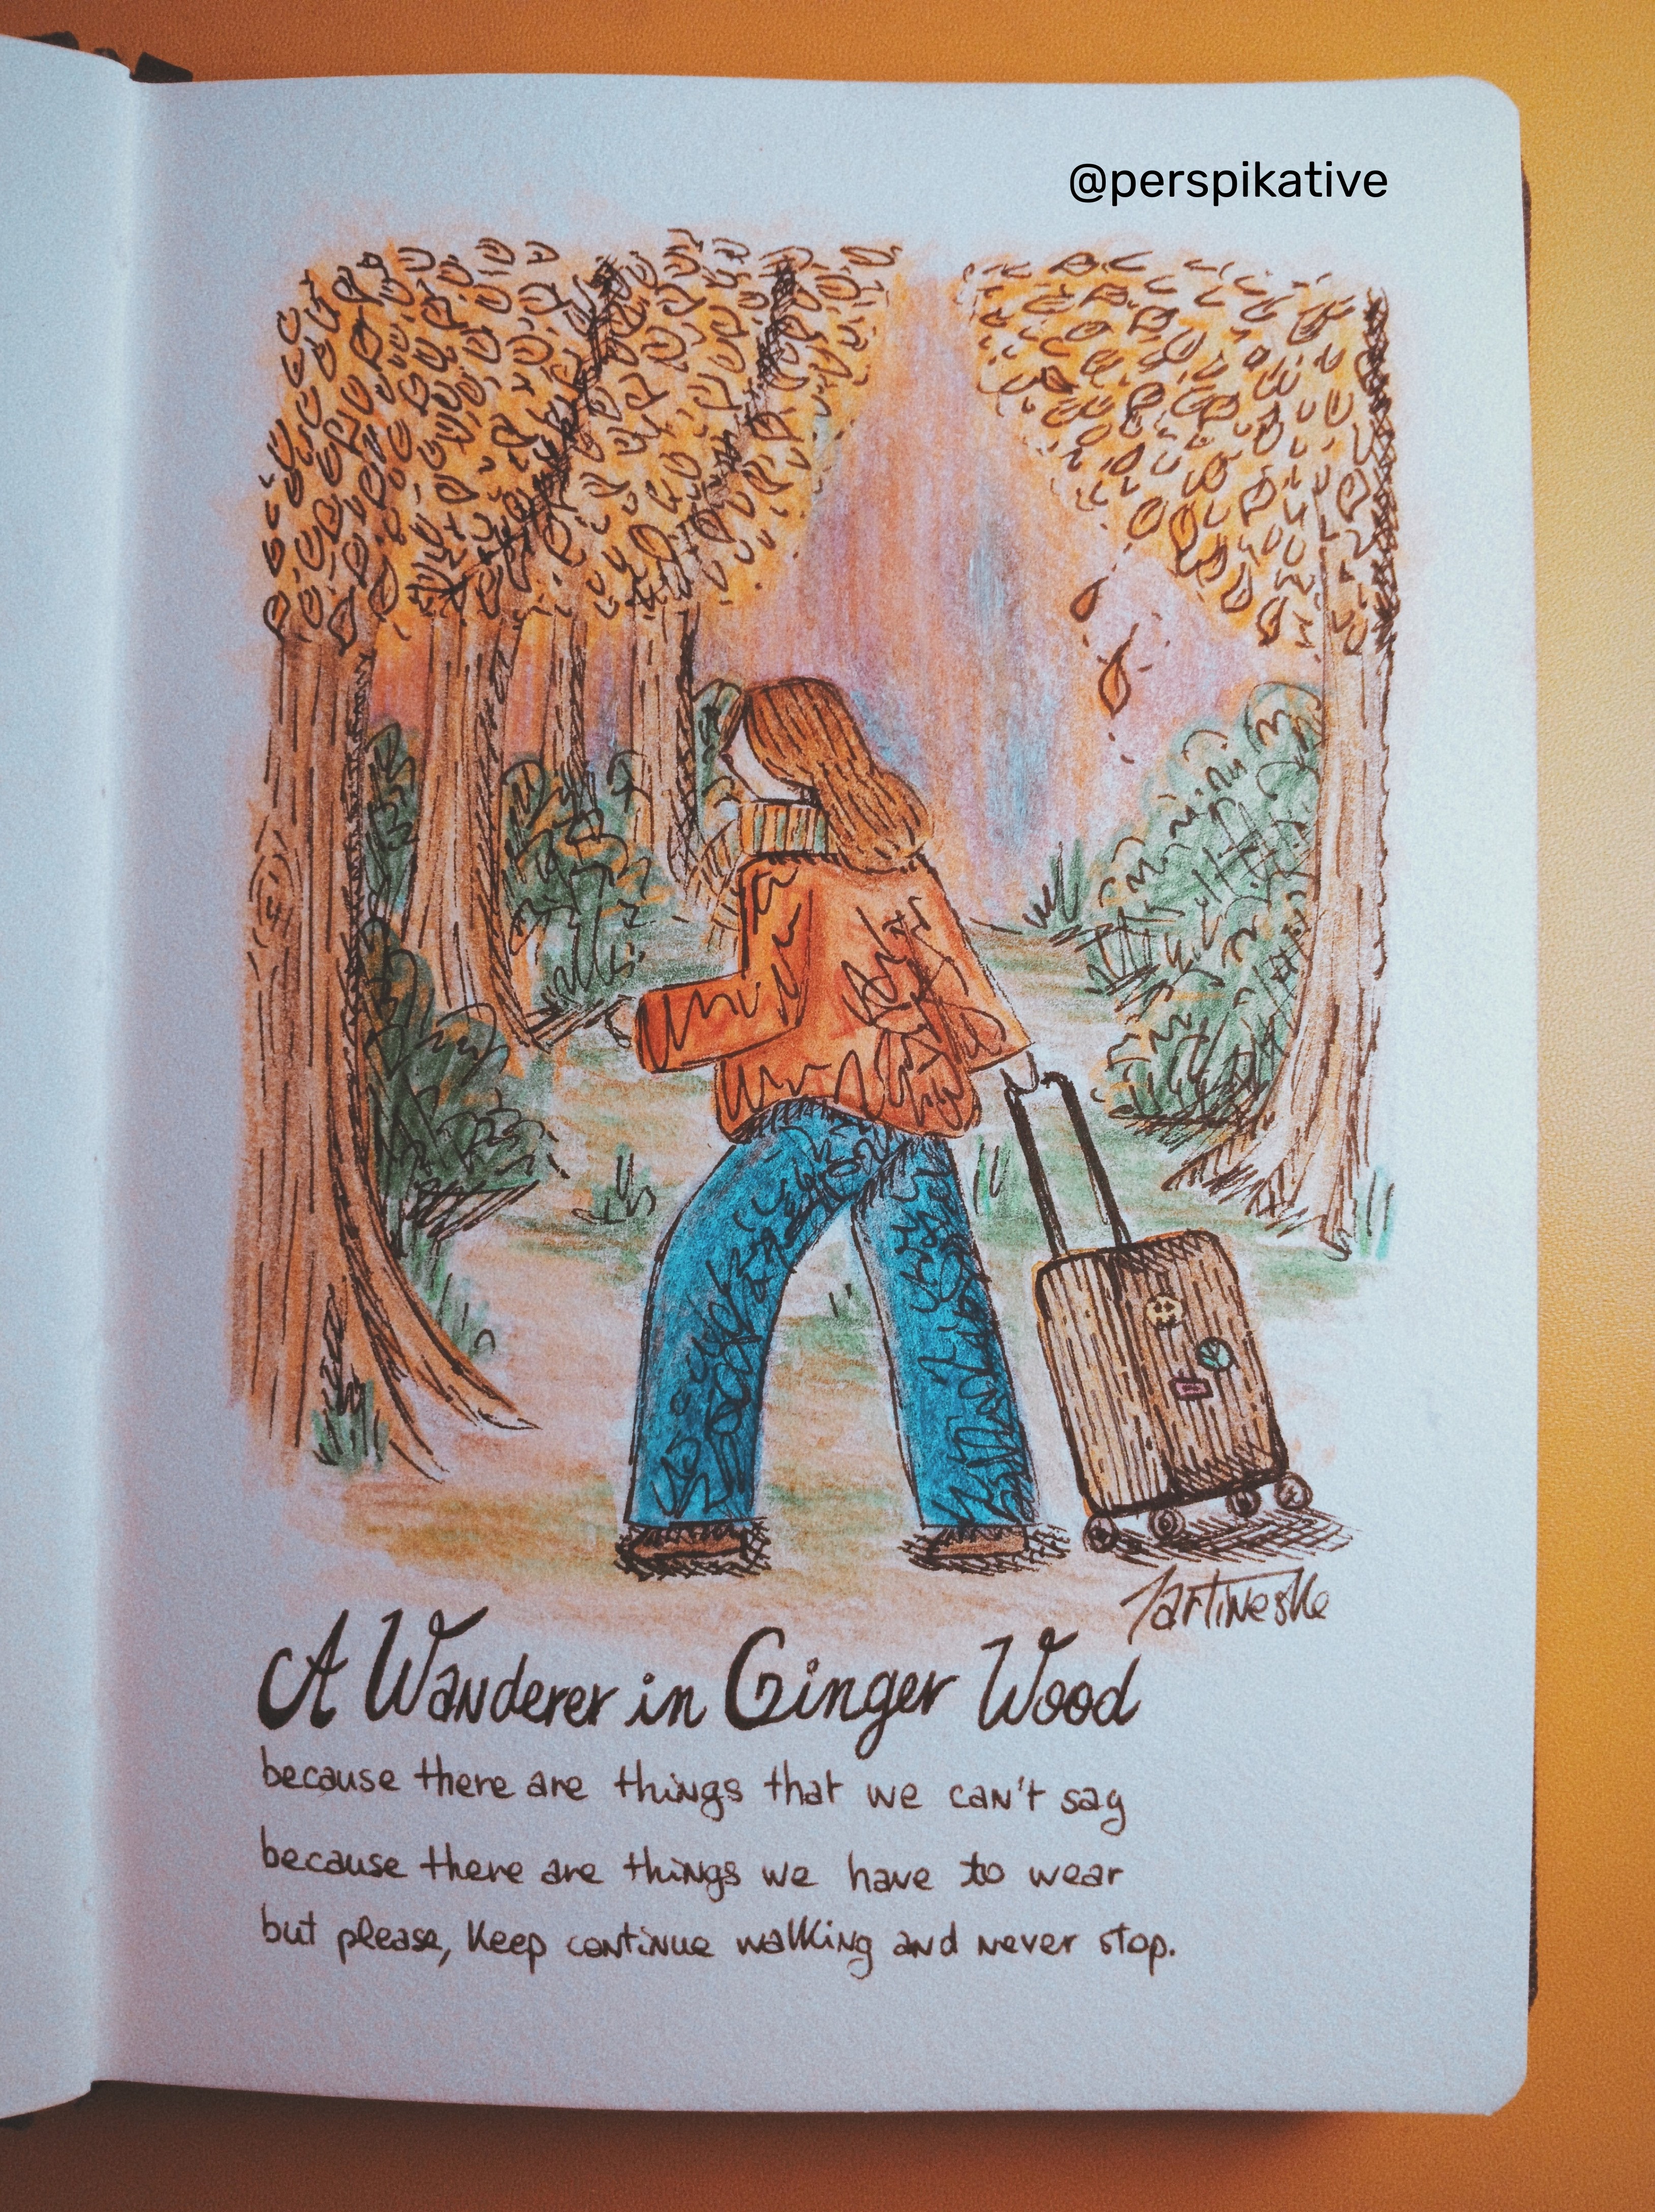 @perspikative
A Wanderer in Ginger Wood
because there are things that we can't say
because there are things we have to wear
but please, keep continue walking and never stop.